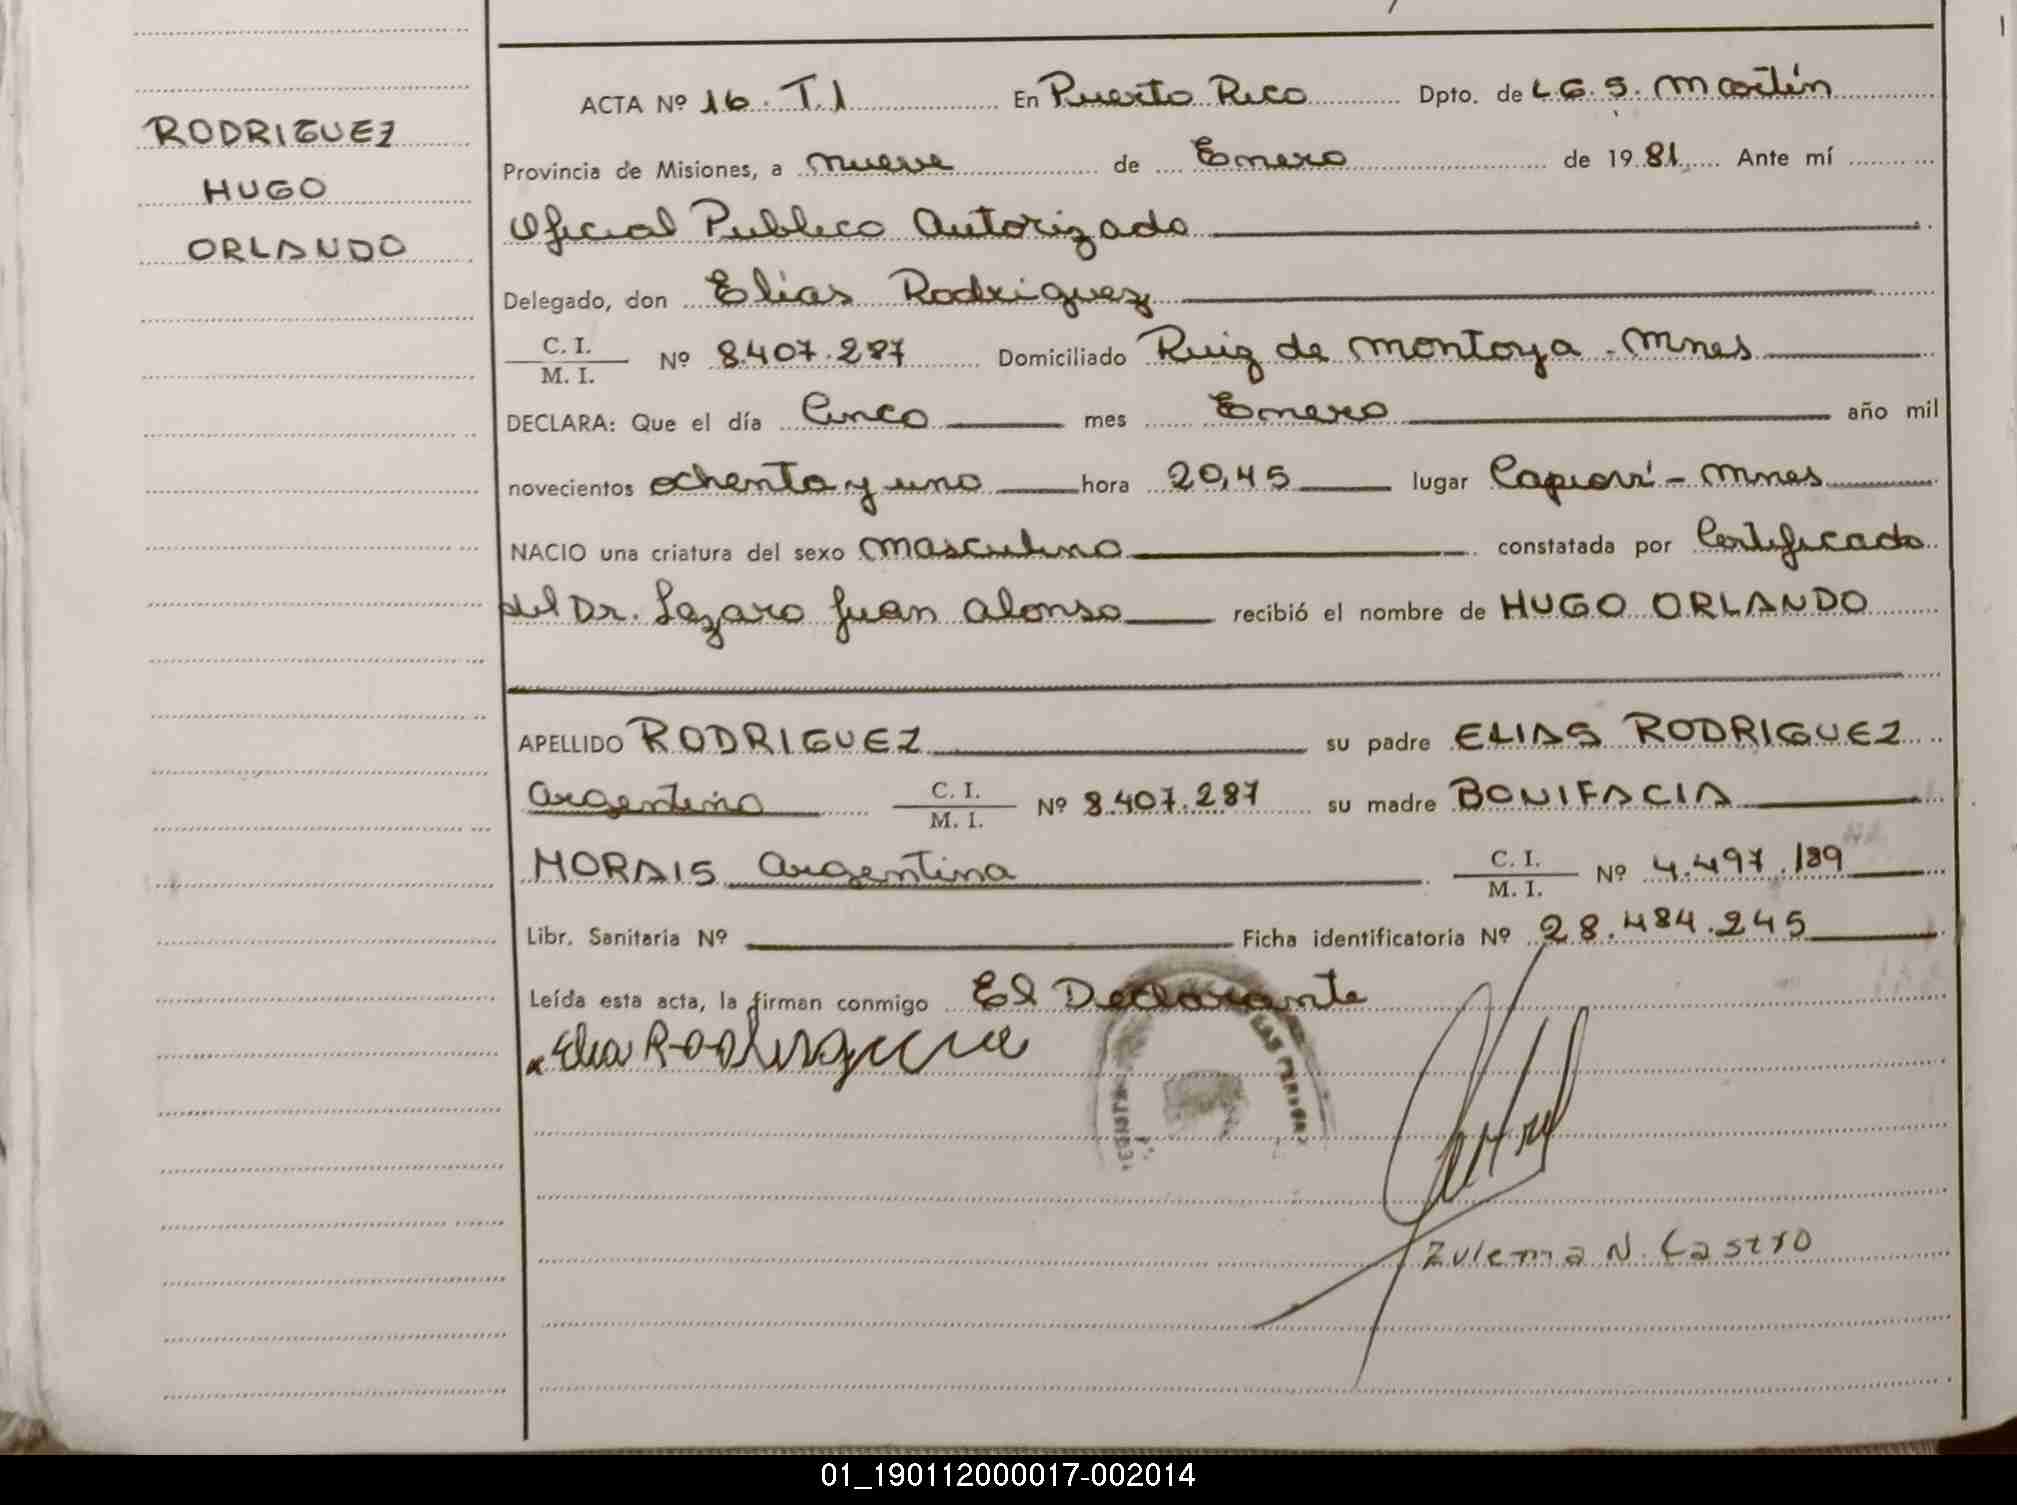 RODRIGUEZ
HUGO
ORLANDO
ACTA Nº 16. T.1 En Puerto Rico Dpto. de L.G.S. Martín
Provincia de Misiones, a nueve de Enero de 1981, Ante mí
Oficial Publico Autorizado
Delegado, don Elias Rodriguez
C. I.
M. I. Nº 8.407.287 Domiciliado Ruiz de Montoya - Mnes
DECLARA: Que el día Cinco mes Enero año mil
novecientos ochenta y uno hora 20,45 lugar Capioví - Mnes
NACIO una criatura del sexo masculino constatada por Certificado
del Dr. Lazaro Juan Alonso recibió el nombre de HUGO ORLANDO
APELLIDO RODRIGUEZ su padre ELIAS RODRIGUEZ
argentino C. I.
M. I. Nº 8.407.287 su madre BONIFACIA
MORAIS argentina C. I.
M. I. Nº 4.497.189
Libr. Sanitaria Nº Ficha identificatoria Nº 28.484.245
Leída esta acta, la firman conmigo El Declarante
Zulema N. Castro
01_190112000017-002014